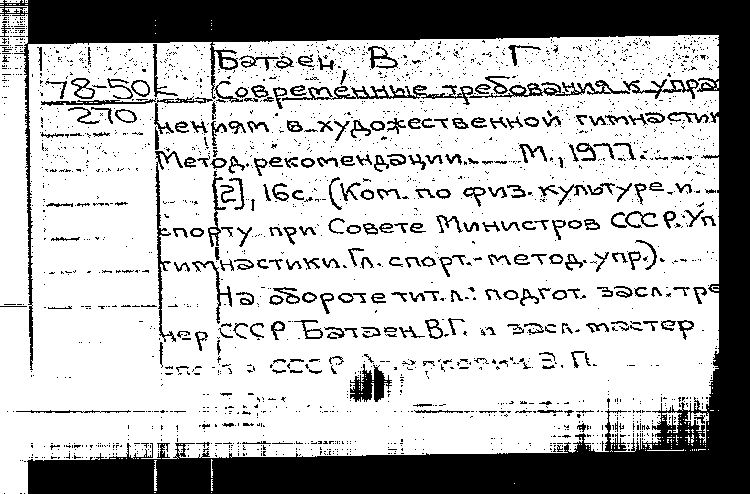 Батаен, В Г
78-50 Современные требования к упра
270
нениям в художественной гимнастик
Метод. рекомендации. М., 1977.
[2], 16с. (Ком. по физ. культуре и
спорту при Совете Министров СССР. Уп
гимнастики. Гл. спорт.-метод. упр.).
На обороте тит. л.: подгот. засл. тре
нер СССР Батаен В.Г. и засл. мастер
СССР Э. П.